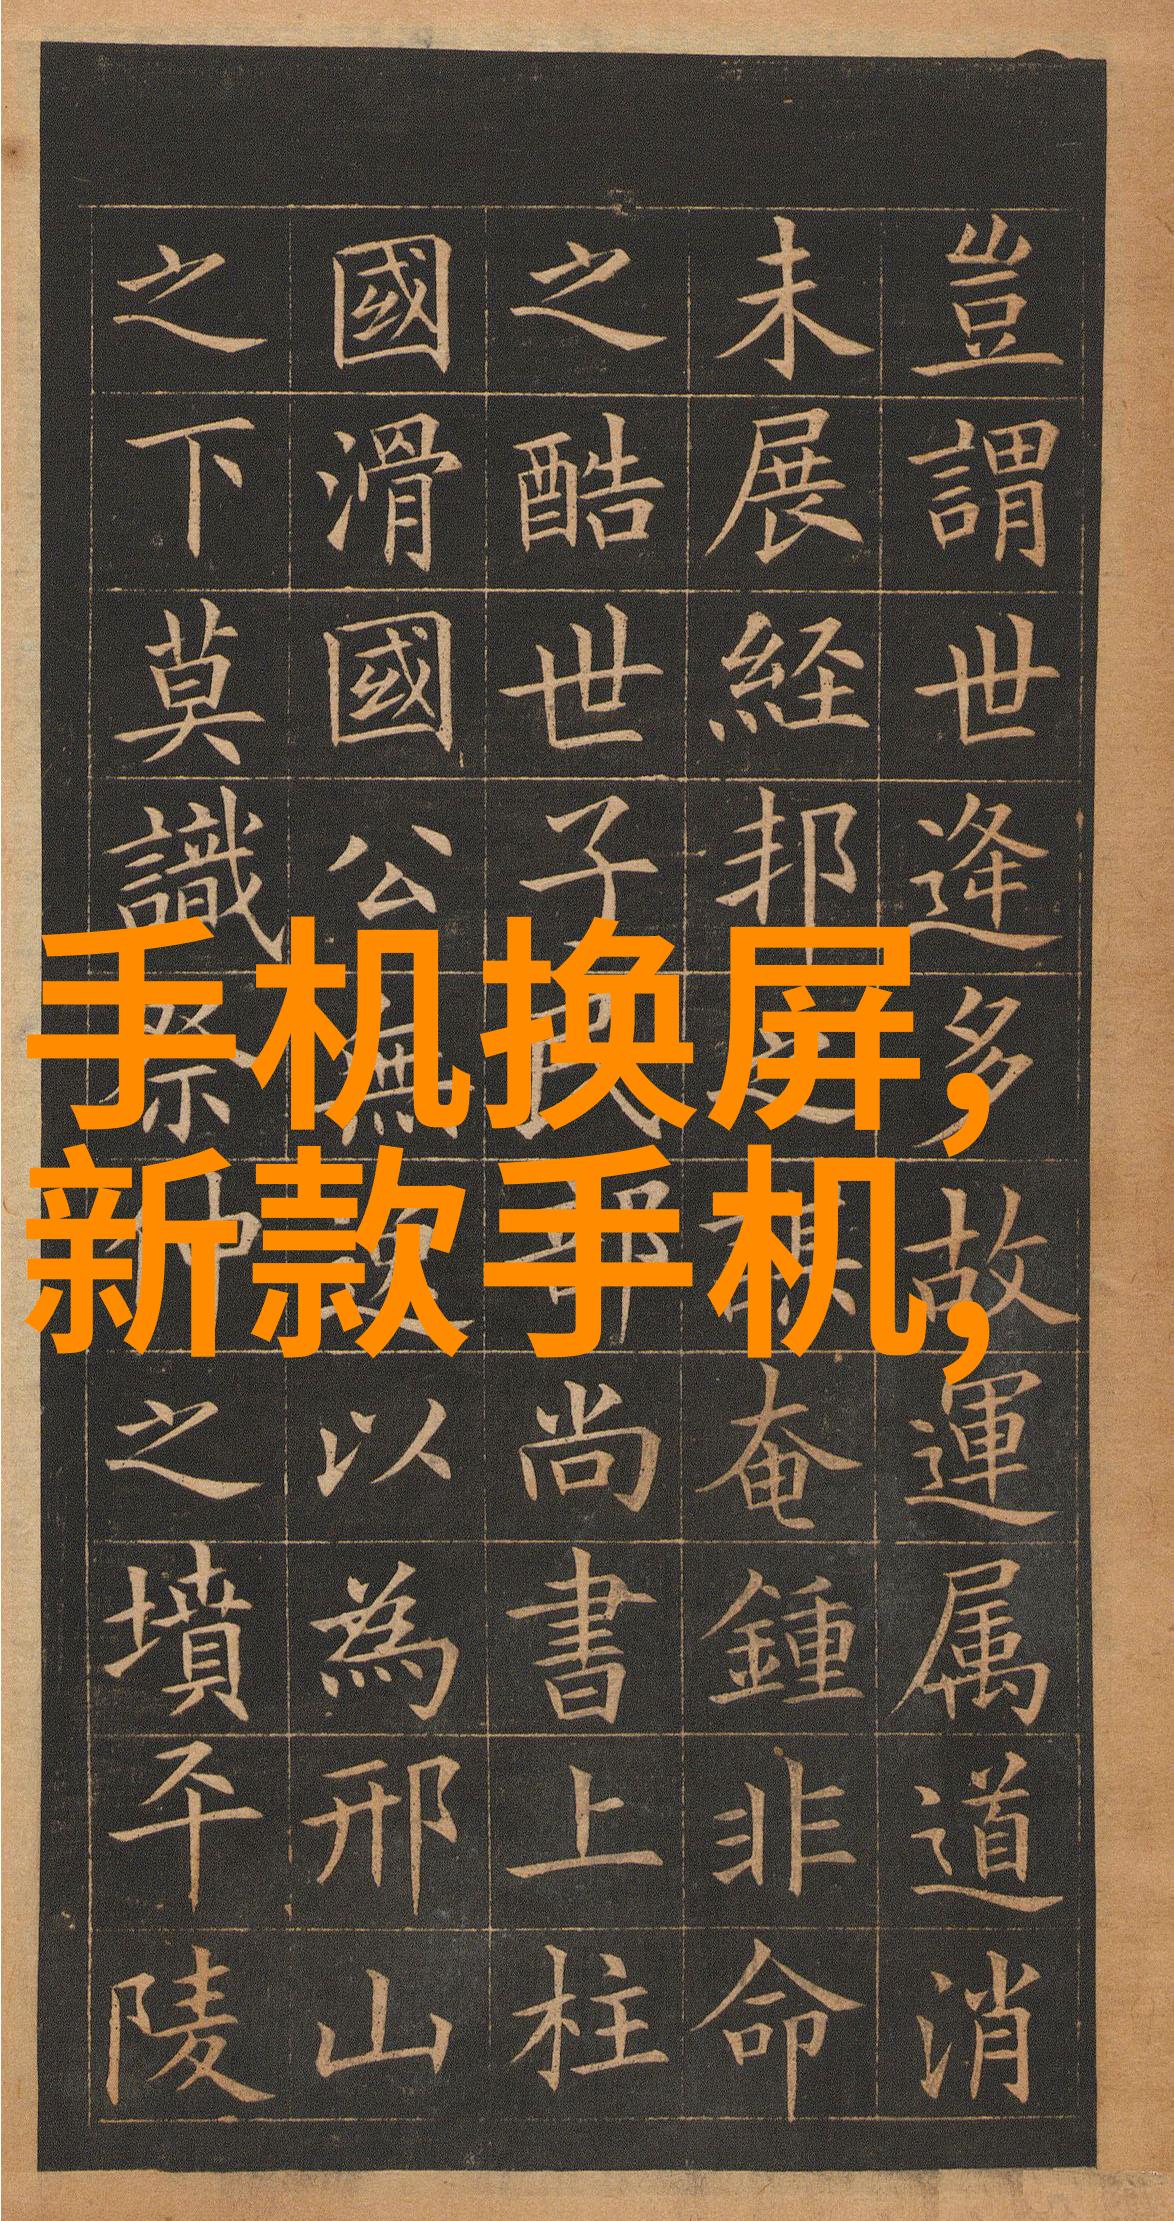 豈謂世逢多故運属道消
未展経邦之奄鍾非命
之酷世子民部尚書上柱
國滑國公無逸以為邢山
之下莫識祭仲之墳平陵
手机换屏,
新款手机,